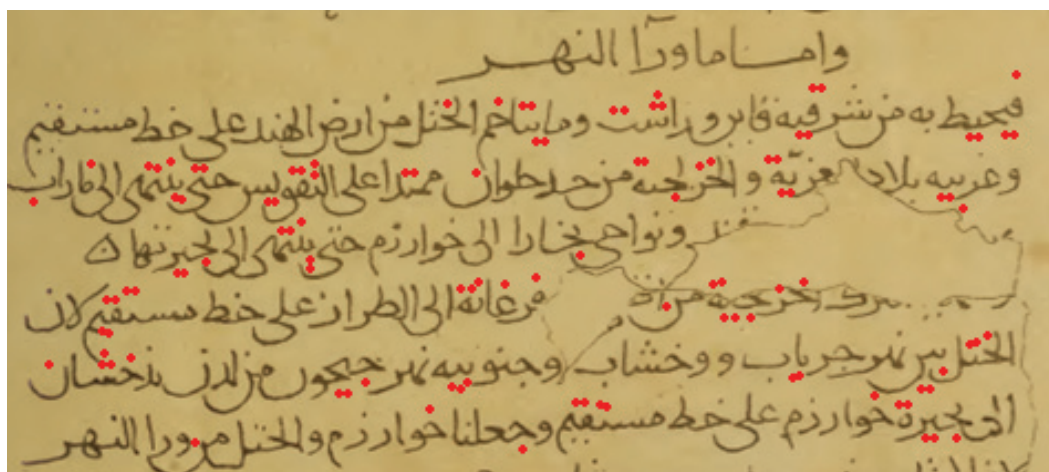 واما ماورآ النهر
فيحيط به من شرقيه فامر وراشت وما يتاخم الختل من ارض الهند على خط مستقيم
وغربيه بلاد الغزيّة والخرلخية من حد طوان ممتدا على التقويس حتى ينتهى الى فاراب
ونواحى بخارا الى خوارزم حتى ينتهى الى بحيرتها
فرغانة الى الطراز على خط مستقيم لان
الختل بين نهر جرياب ووخشاب وجنوبيه نهر جيحون من لدن بذخشان
الى بحيرة خوارزم على خط مستقيم وجعلنا خوارزم والختل من ورا النهر